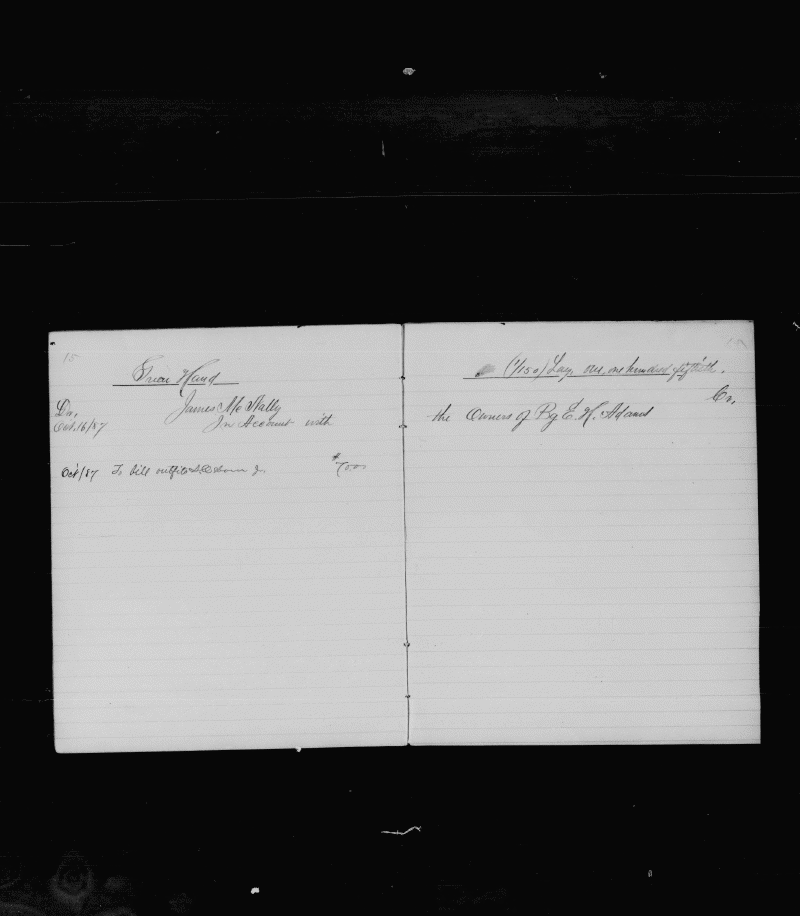 15
Green Hand
Dr.
James McNally
Oct. 16/87
In Account with
Oct/87 To bill outfits Jr. $70 00
15
(1/150) Lay, one, one hundred fiftieth.
Cr.
the Owners of Bg E. H. Adams